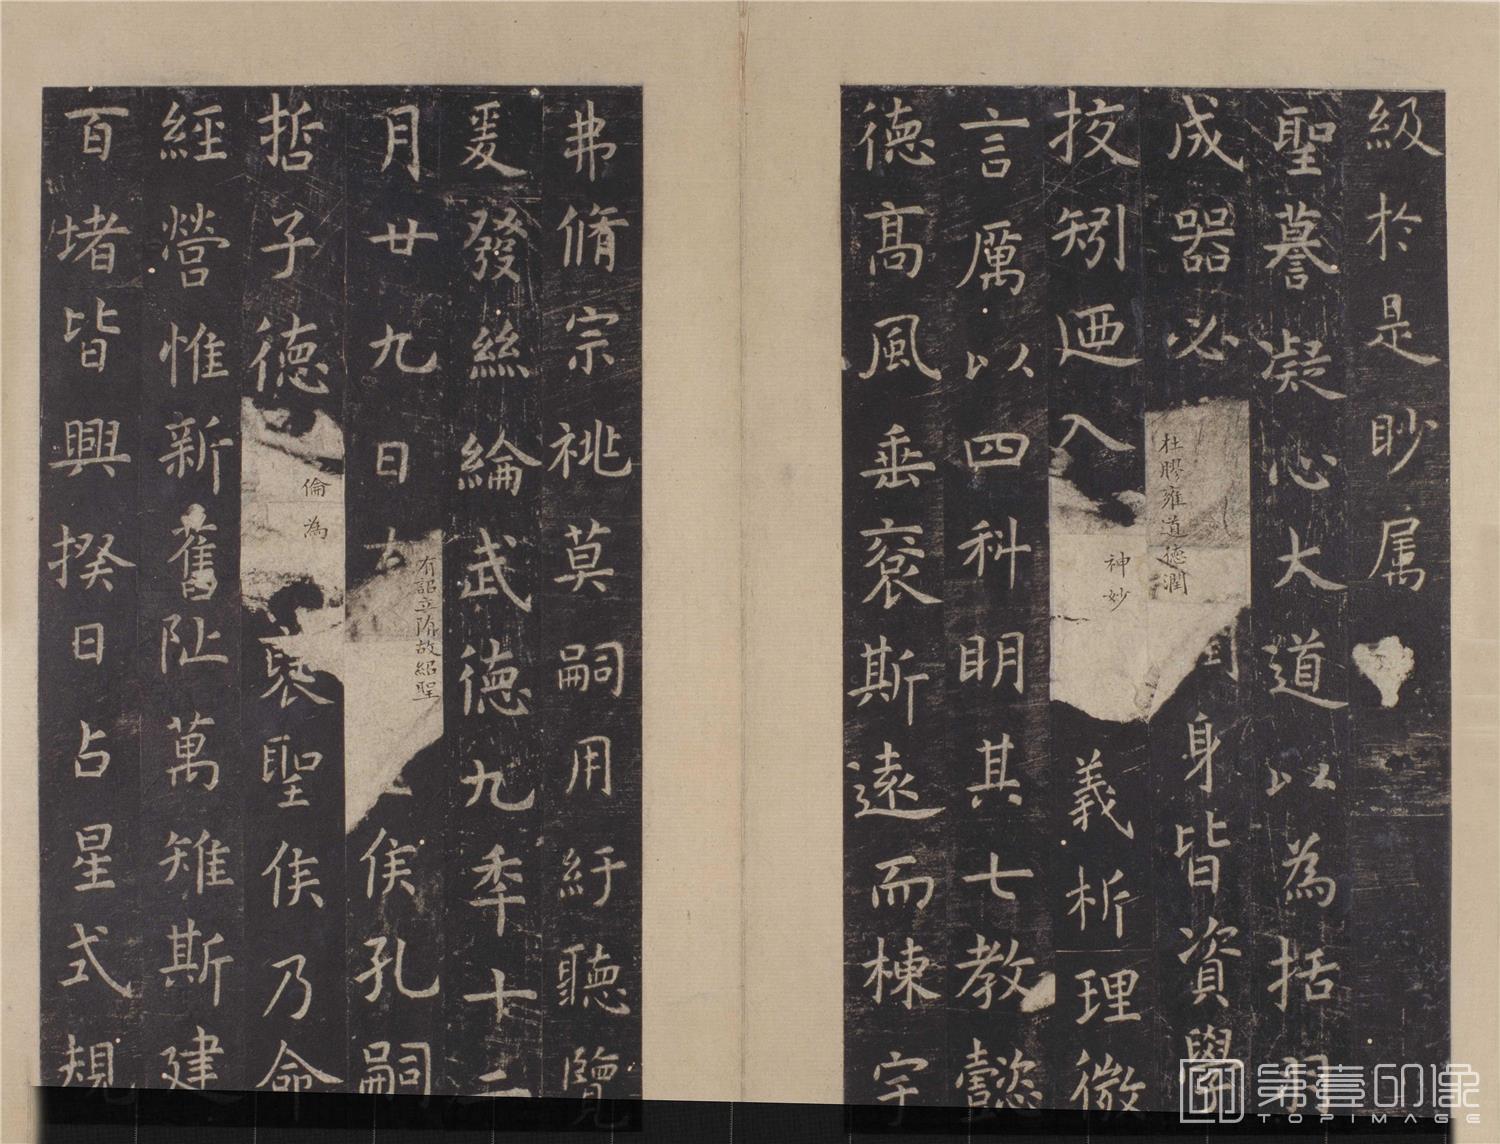 級於是眇属
聖謩凝心大道以為括羽
成器必
杜膠雍道德潤
身皆資學
挍矧廼入
神妙
義析理微
言厲以四科明其七教懿
德髙風垂裒斯遠而棟宇
弗脩宗祧莫嗣用紆聽覽
爰發絲綸武德九年十二
月廿九日有
有詔立隋故紹聖
侯孔嗣
哲子德
倫為
裦聖侯乃命
經營惟新舊阯萬雉斯建
百堵皆興揆日占星式規
第壹印像
TOPIMAGE